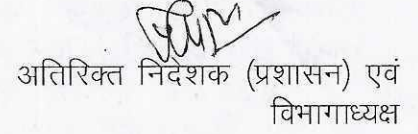 अतिरिक्त निदेशक (प्रशासन) एवं
विभागाध्यक्ष